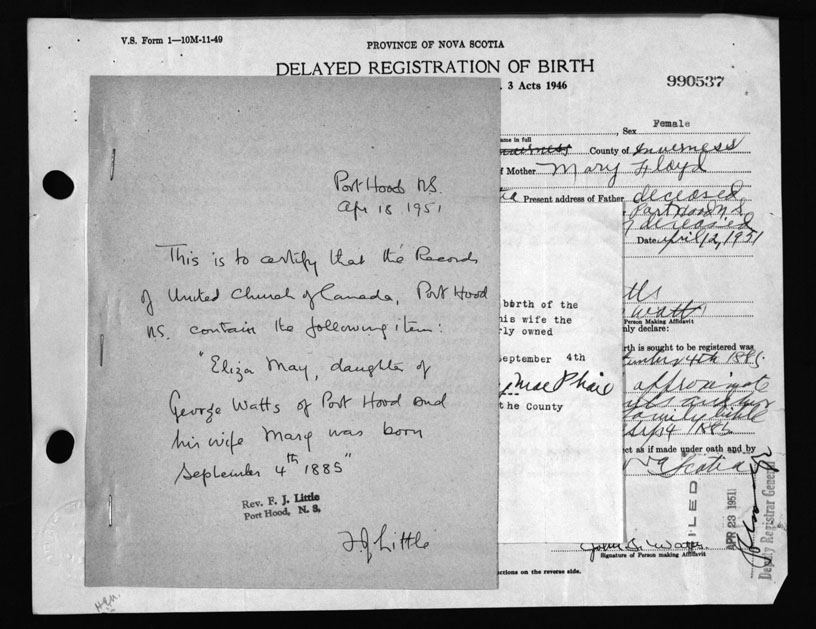 V.S. Form 1—10M-11-49
PROVINCE OF NOVA SCOTIA
DELAYED REGISTRATION OF BIRTH
3 Acts 1946
990537
Port Hood N.S.
Apr 18 1951
This is to certify that the Records
of United Church of Canada, Port Hood
N.S. contain the following item:
"Eliza May, daughter of
George Watts of Port Hood and
his wife Mary was born
September 4th 1885"
Rev. F. J. Little
Port Hood, N. S.
F J Little
birth of the
his wife the
rly owned
September 4th
MacPhail
the County
Sex Female
ame in full
County of Inverness
Mother Mary Floyd
Present address of Father deceased
Port Hood N.S
deceased
Date April 12, 1951
Watts
Person Making Affidavit
nly declare:
rth is sought to be registered was
4th 1885
approximate
family bible
Sept 4 1885
ect as if made under oath and by
Scotia
FILED
APR 23 1951
Deputy Registrar General
John S. Watts
Signature of Person making Affidavit
ctions on the reverse side.